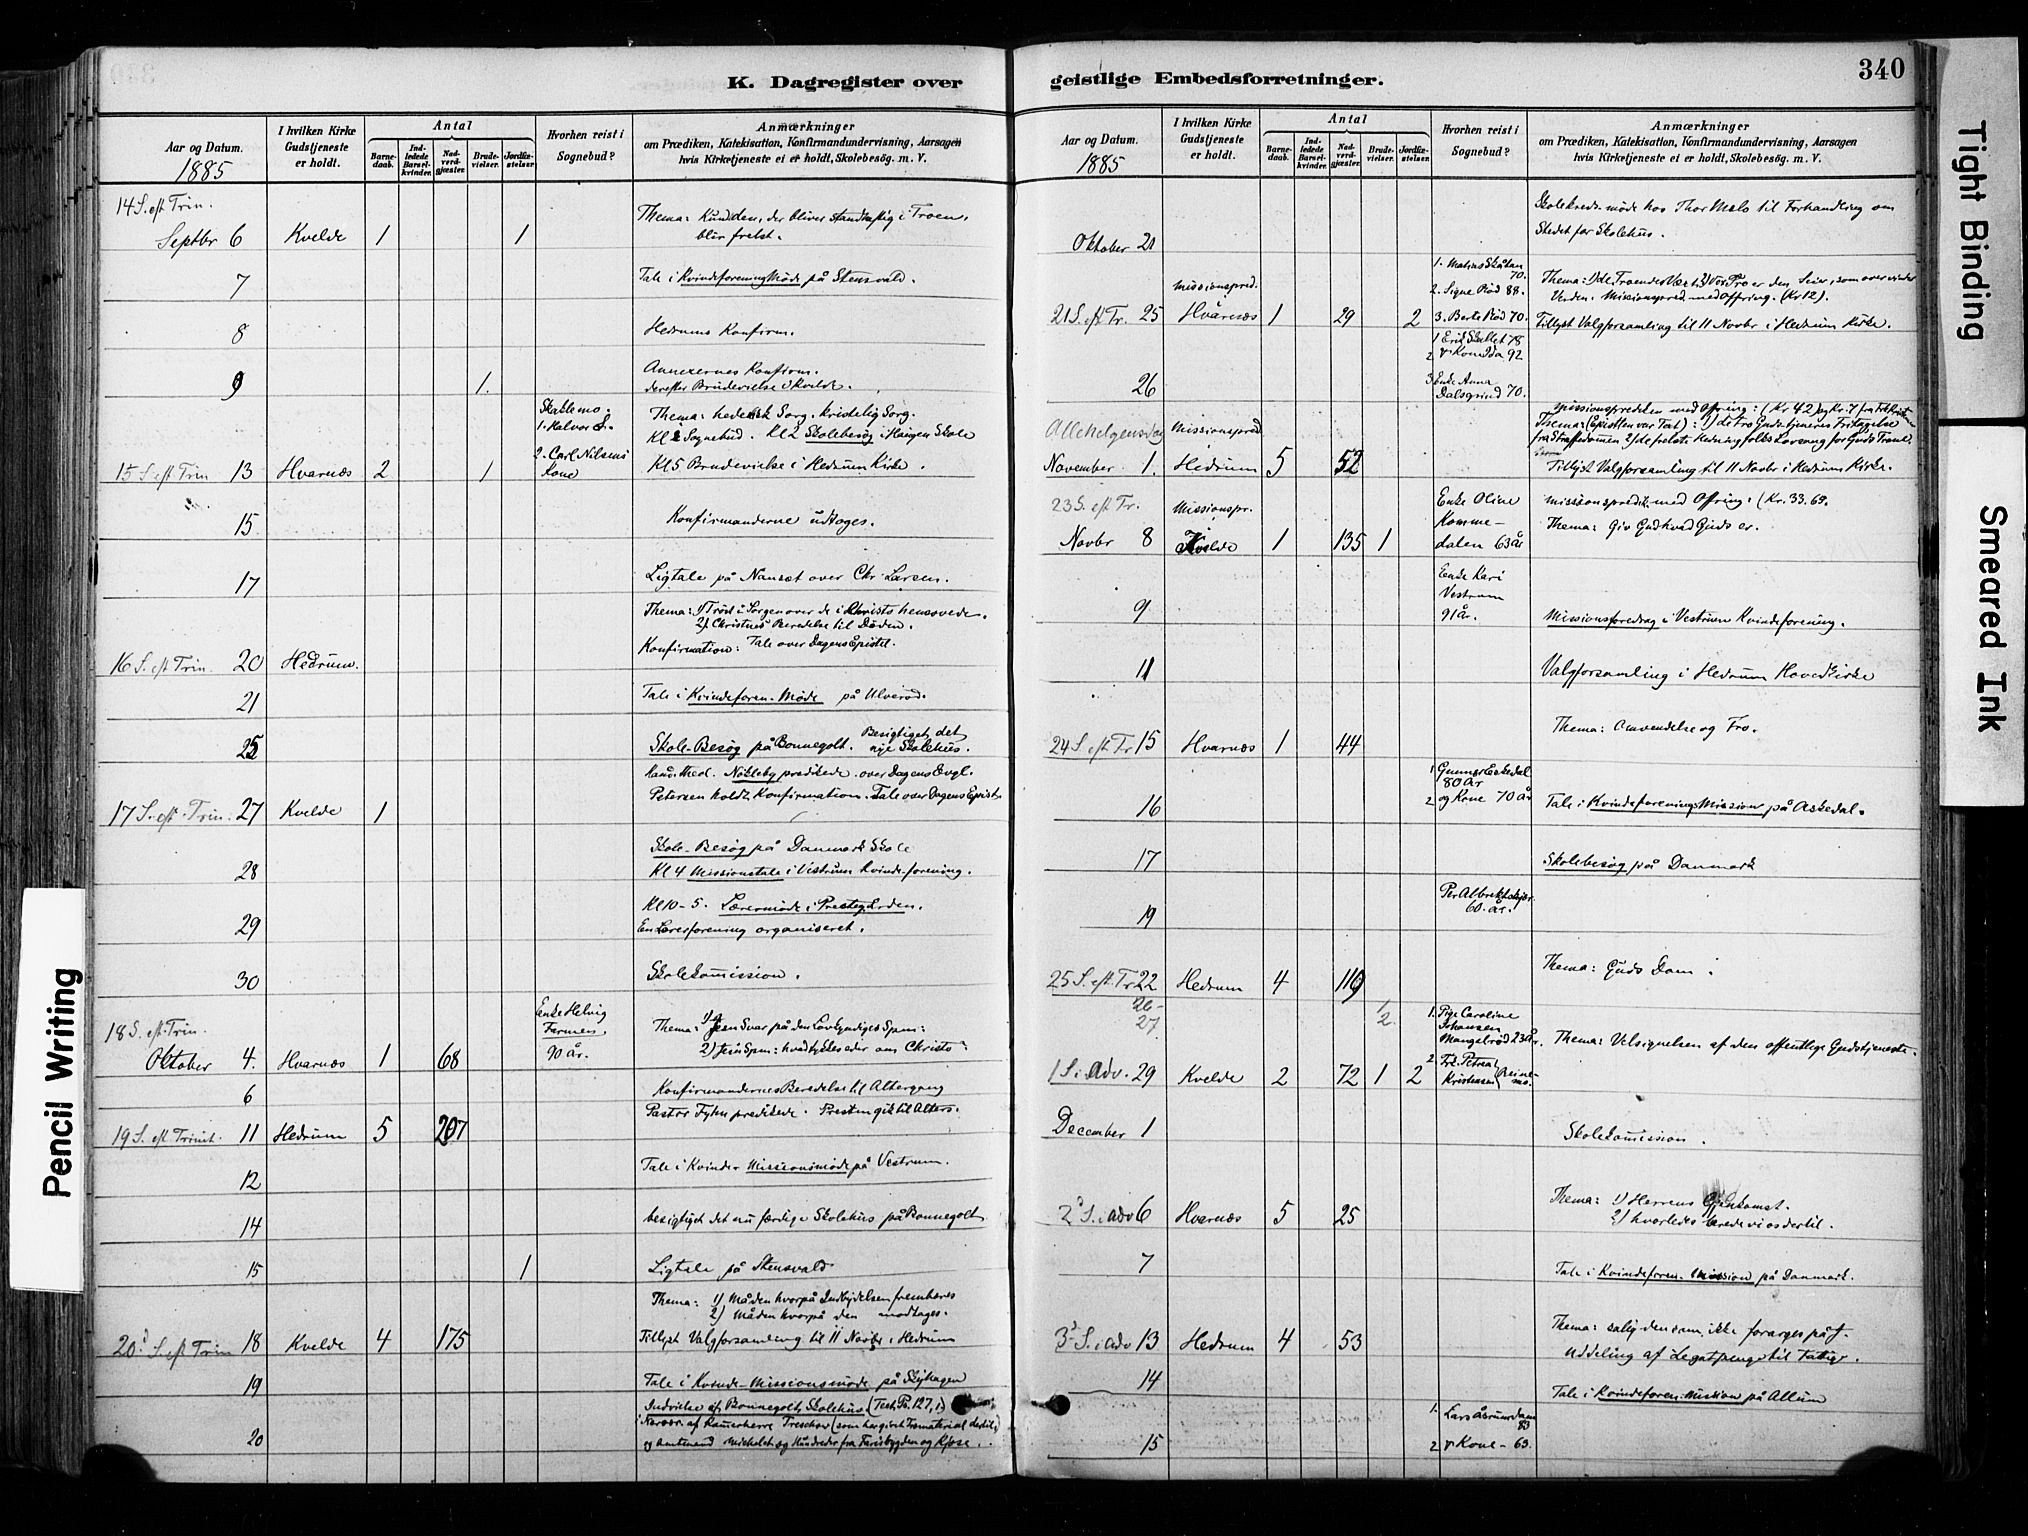 K. Dagregister over
Aar og Datum.
1885
I hvilken Kirke
Gudstjeneste
er holdt.
Antal
Barne-
daab.
Ind-
ledede
Barsel-
kvinder.
Nad-
verd-
gjæster.
Brude-
vielser.
Jordfæ-
stelser.
Hvorhen reist i
Sognebud?
Anmærkninger
om Prædiken, Katekisation, Konfirmandundervisning, Aarsagen
hvis Kirketjeneste ei er holdt, Skolebesög. m. V.
14 S. eft Trin.
Septbr 6 Kvelde 1 1
Thema: Kun den, der bliver standhaftig i Troen,
blir frelst.
7 Tale i Kvindeforening Møde på Stensvald.
8 Hedrums Konfirm.
9 1. Annexernes Konfirm.
derefter Brudevielse i Kvelde.
Skaklemo.
1. Halvor S.
2. Carl Nilsens
Kone
15 S. eft Trin 13 Hvarnæs 2 1
Thema: hedensk Sorg. Kristelig Sorg.
Kl 2 Skolebesøg i Haugen Skole
Kl 5 Brudevielse i Hedrum Kirke.
15 Konfirmanderne udtoges.
17 Ligtale på Nanset over Chr. Larsen.
Thema: 1) Trøst i Sorgen over de i Christo hensovede.
2) Christnes Beredelse til Døden.
16 S. eft Trin. 20 Hedrum.
Konfirmation: Tale over Dagens Epistel.
21 Tale i Kvindeforen-Møde på Ulverød.
25 Skole-Besøg på Bonnegolt. Besigtiget det
nye Skolehus.
Kand. theol. Nøkleby predikede over Dagens Evgl.
17 S. eft. Trin. 27 Kvelde 1
Petersen holdt Konfirmation. Tale over Dagens Epist.
28 Skole-Besøg på Danmark Skole
Kl 4 Missionstale i Vestrum Kvindeforening.
29 Kl 10-5. Lærermøde i Prestegården.
En Lærerforening organiseret.
30 Skolekomission.
18 S. eft. Trin.
Enke Helvig
Farmen.
90 år.
Oktober 4. Hvarnæs 1 68
Thema: 1) Jesu Svar på den Lovkyndiges Spm:
2) Jesu Spm: hvad tykkes eder om Christo
6 Konfirmandernes Beredelse til Altergang
19 S. eft Trinit. 11 Hedrum 5 207
Pastor Fyhn predikede. Presten gik til Alters.
12 Tale i Kvinder Missionsmøde på Vestrum.
14 besigtiget det nu færdige Skolehus på Bonnegolt
15 1 Ligtale på Stensvald
Thema: 1) Måden hvorpå Indbydelsen fremberes
2) Måden hvorpå den modtages.
20d S. eft Trin 18 Kvelde 4 175
Tillyst Valgforsamling til 11 Novbr i Hedrum
19 Tale i Kvinde-Missionsmøde på Skjhagen
20 Indvielse af Bonnegolts Skolehus (Text Ps. 127, 1)
Nærvær. af Kammerherre Treschow (som har givet Tomaterial dertil)
og Amtmand Michelet og Hundreder fra Farrisbygden og Kjose.
geistlige Embedsforretninger.
340
Aar og Datum.
1885
I hvilken Kirke
Gudstjeneste
er holdt.
Antal
Barne-
daab.
Ind-
ledede
Barsel-
kvinder.
Nad-
verd-
gjæster.
Brude-
vielser.
Jordfæ-
stelser.
Hvorhen reist i
Sognebud?
Anmærkninger
om Prædiken, Katekisation, Konfirmandundervisning, Aarsagen
hvis Kirketjeneste ei er holdt, Skolebesög. m. V.
Oktober 21
Skolekreds-møde hos Thor Melø til Forhandling om
Stedet for Skolehus.
1. Matias Skåtan
70.
2. Signe Rød 88.
3. Berte Rød 70.
missionspred.
21 S. eft Tr. 25 Hvarnæs 1 29 2
Thema: 1) de Troendes Vært 2) Vor Tro er den Seier, som overvinder
Verden. Missionspred. med Offring. (Kr 12).
Tillyst Valgforsamling til 11 Novbr i Hedrum Kirke.
26
1 Erik Skallet 78
2 & Kone Ida 92
3 Enke Anna
Dalsgrind 70.
Allehelgensdag Missionspred
November 1. Hedrum 5 52
Missionsprediken med Offring: (Kr 42)
Thema: (Epistlen var Text): 1) de tro Guds tjeneres Fritagelse
fra Straffedomen 2) de frelste Hedningfolks Lovsang for Guds Trone.
Tillyst Valgforsamling til 11 Novbr i Hedrum Kirke.
23 S. eft Tr. Missionspr.
Novbr 8 Kvelde 1 135 1
Enke Oline
Komme-
dalen 63 år
missionspredik. med Offring: (Kr. 33.63.
Thema: Giv Gud hvad Guds er.
9
Enke Kari
Vestrum
91 år.
Missionsforedrag i Vestrum Kvindeforening.
11 Valgforsamling i Hedrum Hovedkirke
24 S. eft Tr 15 Hvarnæs 1 44
Thema: Omvendelse og Tro.
16
1 Gunnar Eskedal
80 år
2 og Kone 70 år
Tale i Kvindeforenings Mission på Askedal.
17 Skolebesøg på Danmark
19
60 år.
25 S. eft. Tr 22 Hedrum 4 119
Thema: Guds Dom.
26- 1
27 2
1. Pige Caroline
Johansen
Mangelrød 23 år.
1 S. i Adv. 29 Kvelde 2 72 1 2
2 Frk. Petrea
Kristensen
Thema: Velsignelsen af den offentlige Gudstjeneste.
December 1 Skolekomission.
2d S. i Adv 6 Hvarnæs 5 25
Thema: 1) Herrens Gjenkomst.
2) hvorledes berede vi os dertil.
7 Tale i Kvindeforen. Mission på Danmark.
3d S. i Adv 13 Hedrum 4 53
Thema: salig den som ikke forarges på J.
Uddeling af Legatpenge til Fattige.
14 Tale i Kvindeforen: Mission på Allum
15
1. Lars Åsrumdam
83
2 & Kone - 63.
Tight Binding
Smeared Ink
Pencil Writing